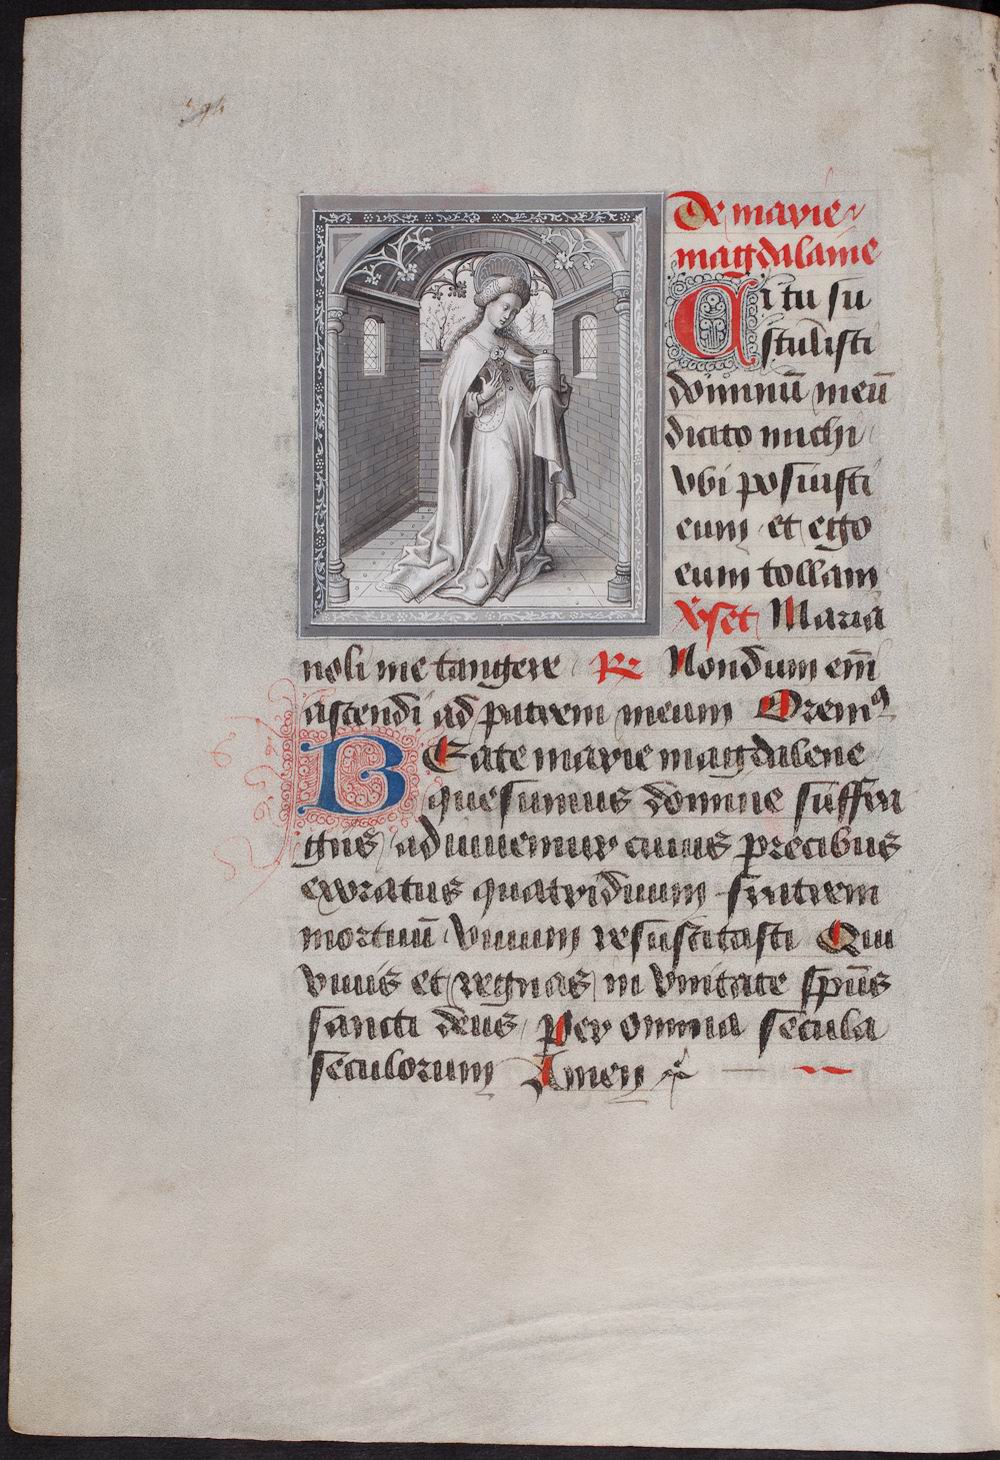 De marie
magdalame
Si tu su
stulisti
dominū meū
dicito michi
vbi posuisti
eum et ego
eum tollam
v̓set Maria
noli me tangere R Nondum em̄
ascendi ad patrem meum Oremꝯ
BEate marie magdalene
quesumus domine suffra
gus adiuuemur cuius precibus
exoratus quatriduum fratrem
mortuū viuum resuscitasti Qui
viuis et regnas in vnitate sp̄us
sancti deus Per omnia secula
seculorum Amen